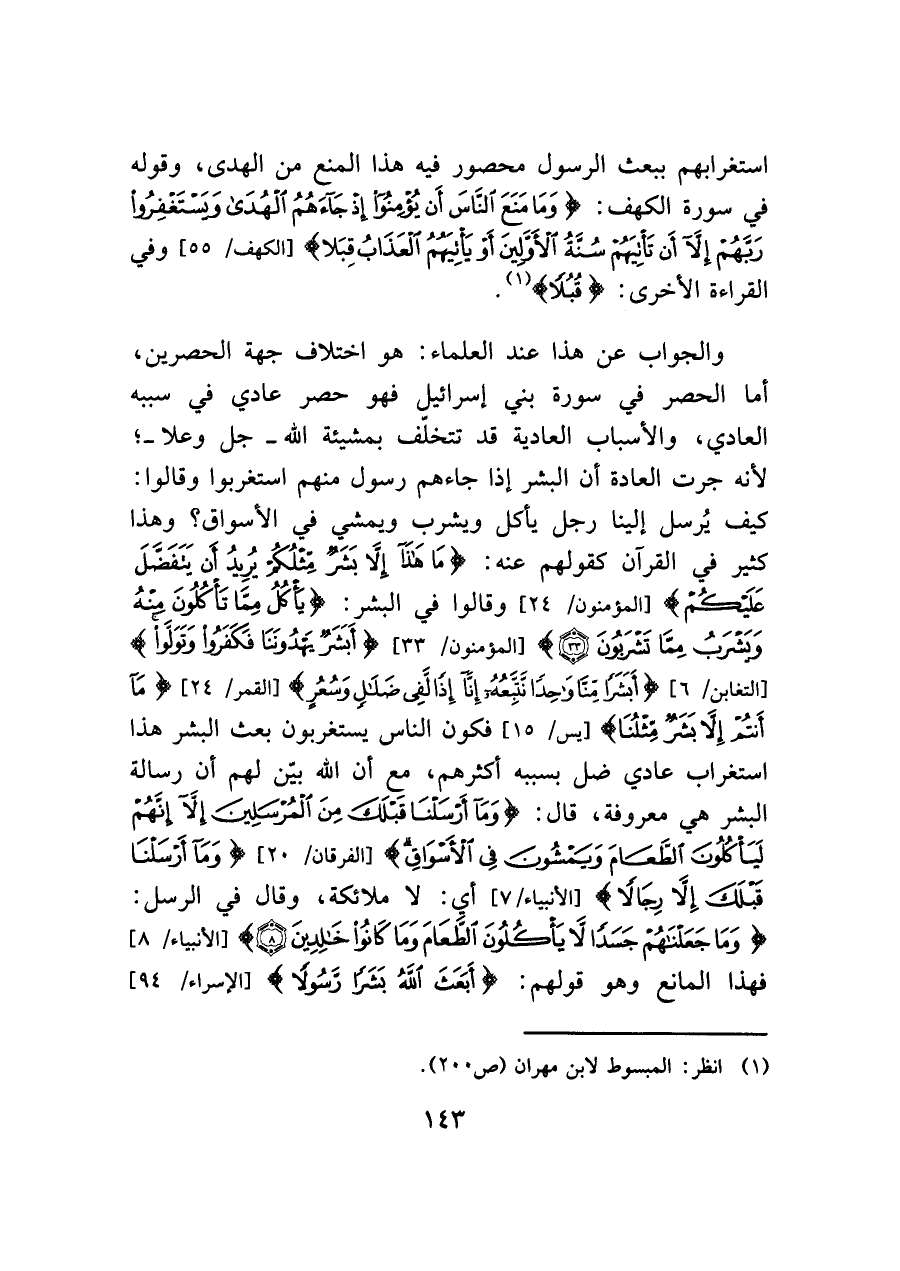 استغرابهم ببعث الرسول محصور فيه هذا المنع من الهدى، وقوله
في سورة الكهف: ﴿ وَمَا مَنَعَ ٱلنَّاسَ أَن يُؤْمِنُوٓا۟ إِذْ جَآءَهُمُ ٱلْهُدَىٰ وَيَسْتَغْفِرُوا۟
رَبَّهُمْ إِلَّآ أَن تَأْتِيَهُمْ سُنَّةُ ٱلْأَوَّلِينَ أَوْ يَأْتِيَهُمُ ٱلْعَذَابُ قِبَلًا﴾ [الكهف/ ٥٥] وفي
القراءة الأخرى: ﴿ قُبُلًا﴾(١).
والجواب عن هذا عند العلماء: هو اختلاف جهة الحصرين،
أما الحصر في سورة بني إسرائيل فهو حصر عادي في سببه
العادي، والأسباب العادية قد تتخلّف بمشيئة الله ـ جل وعلا ـ؛
لأنه جرت العادة أن البشر إذا جاءهم رسول منهم استغربوا وقالوا:
كيف يُرسل إلينا رجل يأكل ويشرب ويمشي في الأسواق؟ وهذا
كثير في القرآن كقولهم عنه: ﴿مَا هَٰذَآ إِلَّا بَشَرٌ مِّثْلُكُمْ يُرِيدُ أَن يَتَفَضَّلَ
عَلَيْكُمْ﴾ [المؤمنون/ ٢٤] وقالوا في البشر: ﴿يَأْكُلُ مِمَّا تَأْكُلُونَ مِنْهُ
وَيَشْرَبُ مِمَّا تَشْرَبُونَ ٣٣﴾ [المؤمنون/ ٣٣] ﴿ أَبَشَرٌ يَهْدُونَنَا فَكَفَرُوا۟ وَتَوَلَّوا۟ۚ ﴾
[التغابن/ ٦] ﴿ أَبَشَرًا مِّنَّا وَٰحِدًا نَّتَّبِعُهُۥٓ إِنَّآ إِذًا لَّفِى ضَلَٰلٍ وَسُعُرٍ﴾ [القمر/ ٢٤] ﴿ مَآ
أَنتُمْ إِلَّا بَشَرٌ مِّثْلُنَا﴾ [يس/ ١٥] فكون الناس يستغربون بعث البشر هذا
استغراب عادي ضل بسببه أكثرهم، مع أن الله بيّن لهم أن رسالة
البشر هي معروفة، قال: ﴿وَمَآ أَرْسَلْنَا قَبْلَكَ مِنَ ٱلْمُرْسَلِينَ إِلَّآ إِنَّهُمْ
لَيَأْكُلُونَ ٱلطَّعَامَ وَيَمْشُونَ فِى ٱلْأَسْوَاقِۗ﴾ [الفرقان/ ٢٠] ﴿ وَمَآ أَرْسَلْنَا
قَبْلَكَ إِلَّا رِجَالًا ﴾ [الأنبياء/٧] أي: لا ملائكة، وقال في الرسل:
﴿ وَمَا جَعَلْنَٰهُمْ جَسَدًا لَّا يَأْكُلُونَ ٱلطَّعَامَ وَمَا كَانُوا۟ خَٰلِدِينَ ٨﴾ [الأنبياء/ ٨]
فهذا المانع وهو قولهم: ﴿ أَبَعَثَ ٱللَّهُ بَشَرًا رَّسُولًا ﴾ [الإسراء/ ٩٤]
(١) انظر: المبسوط لابن مهران (ص٢٠٠).
١٤٣